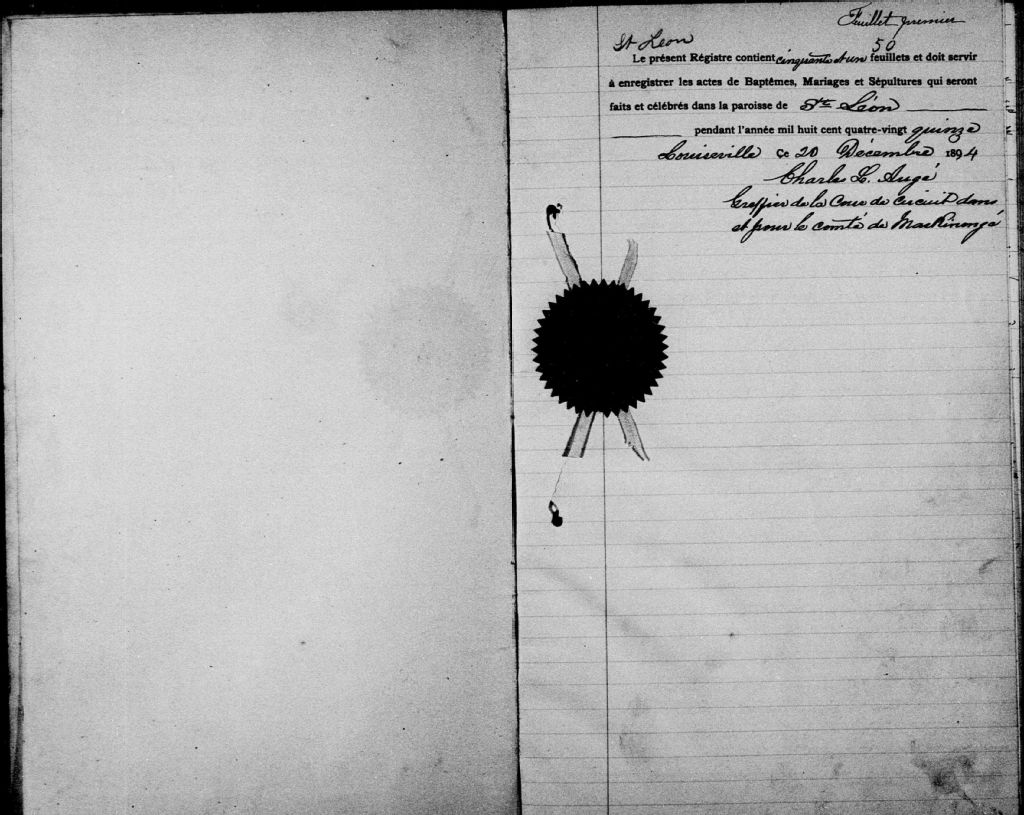 Feuillet premier
St Léon
50
Le présent Régistre contient cinquante et un feuillets et doit servir
à enregistrer les actes de Baptêmes, Mariages et Sépultures qui seront
faits et célébrés dans la paroisse de St Léon
pendant l'année mil huit cent quatre-vingt quinze
Louiseville Ce 20 Décembre 1894
Charles L. Augé
Greffier de la Cour de circuit dans
et pour le comté de Maskinongé